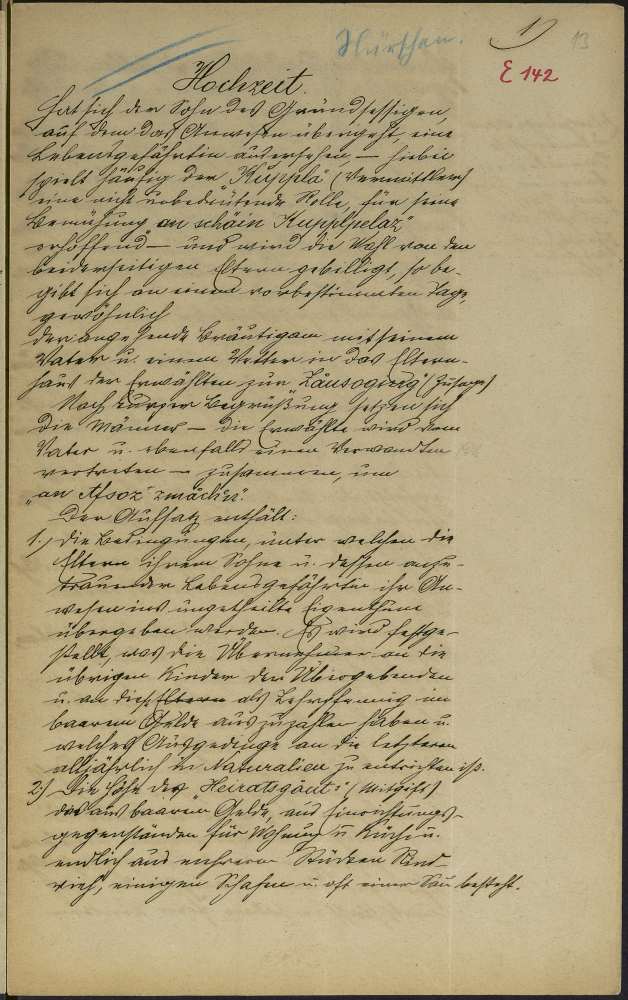 Nürschan.
1)
13
E 142
Hochzeit.
Hat sich der Sohn des Grundsessigen,
auf dem das Anwesen übergeht, eine
Lebensgefährtin ausersehen, — hiebei
spielt häufig der "Kupplă" (Vermittler)
eine nicht unbedeutende Rolle, für seine
Bemühung "an schäin Kupplpelaz"
erhoffend — und wird die Wahl von den
beiderseitigen Eltern gebilligt, so be-
gibt sich an einem vorbestimmten Tage
gewöhnlich
der angehende Bräutigam mit seinem
Vater u. einem Vetter in das Eltern-
haus der Erwählten zur (Zusage)
Nach kurzer Begrüßung setzen sich
die Männer — die Erwählte wird vom
Vater u. ebenfalls einem Verwandten
vertreten — zusammen, um
"an Afsoz zmachn".
Der Aufsatz enthält:
1.) die Bedingungen, unter welchen die
Eltern ihrem Sohne u. dessen anzu-
trauender Lebensgefährtin ihr An-
wesen ins ungetheilte Eigenthum
übergeben werden. Es wird festge-
stellt, was die Übernehmer an die
übrigen Kinder der Übergebenden
u. an diese Eltern als Zehrpfennig im
baarem Gelde auszuzahlen haben u.
welches Ausgedinge an die letzteren
alljährlich in Naturalien zu entrichten ist.
2.) Die Höhe des "Heiratsgaut" (Mitgift)
das aus baarem Gelde, aus Einrichtungs-
gegenständen für Wohnung u. Küche u.
endlich aus mehreren Stücken Rind-
vieh, einigen Schafen u. oft einer Sau besteht.